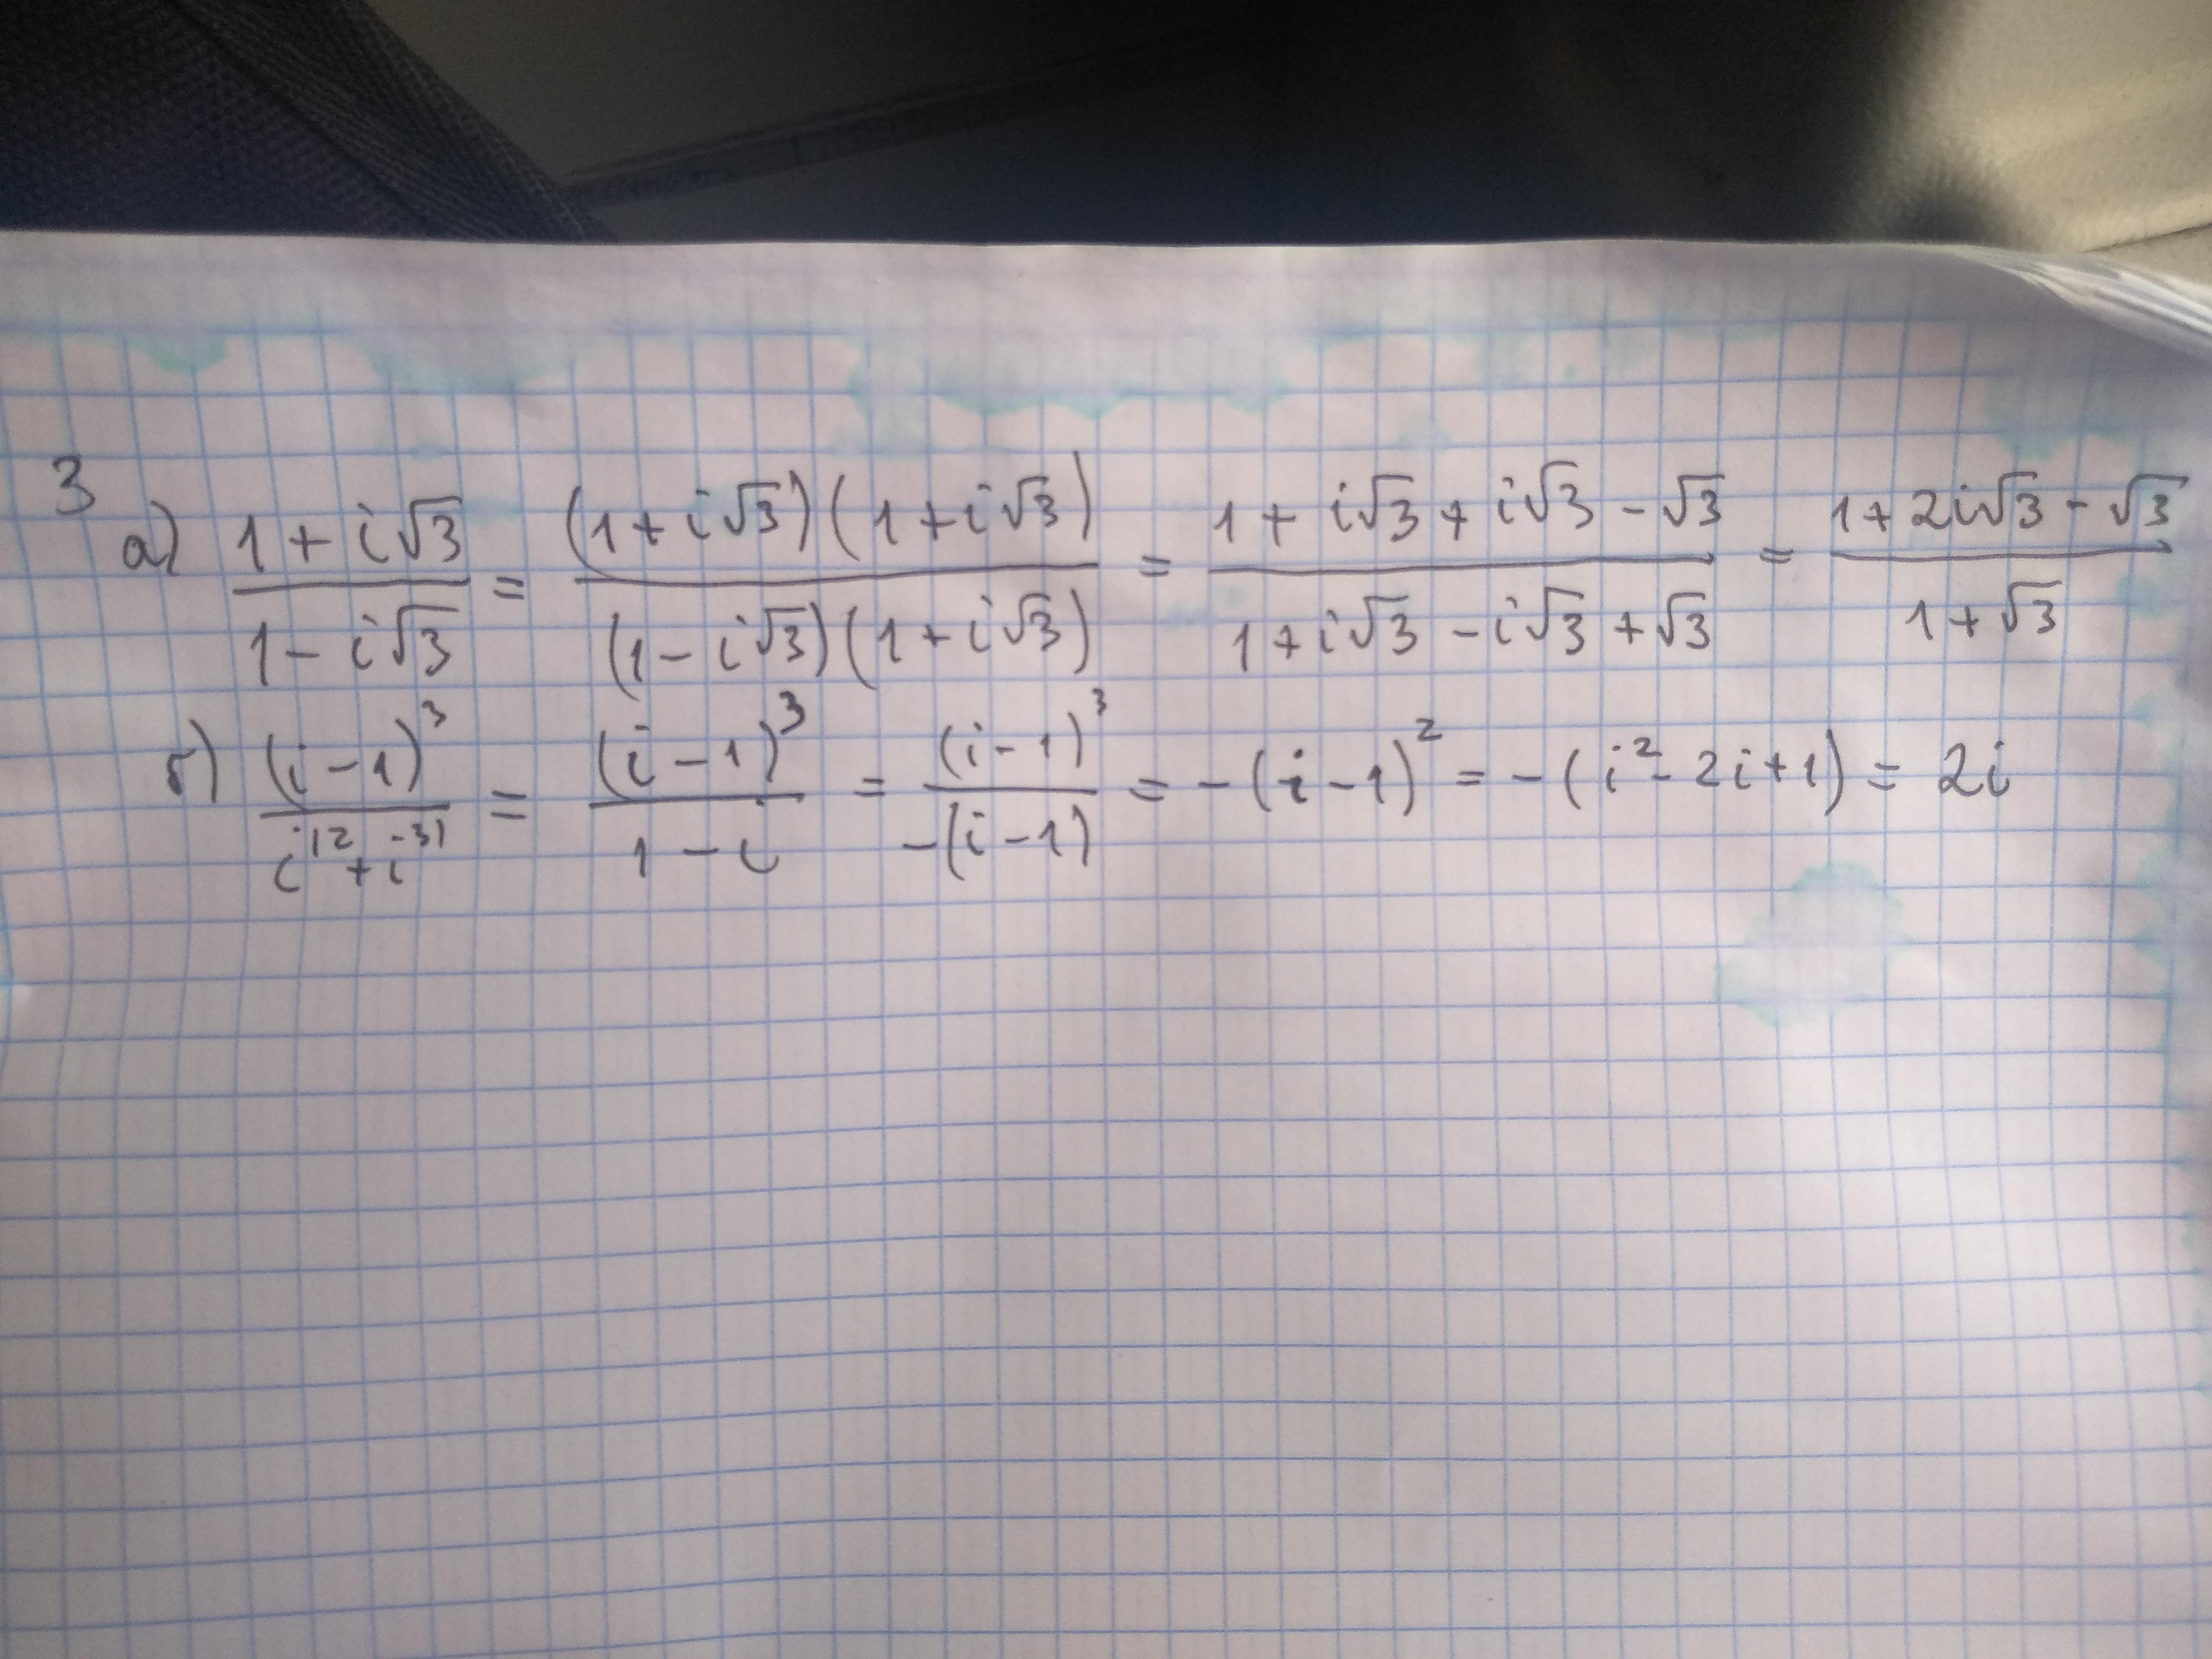 3
а) (1 + i√3)/(1 - i√3) = ((1 + i√3)(1 + i√3))/((1 - i√3)(1 + i√3)) = (1 + i√3 + i√3 - √3)/(1 + i√3 - i√3 + √3) = (1 + 2i√3 - √3)/(1 + √3)
б) (i - 1)³/(i¹² + i³¹) = (i - 1)³/(1 - i) = (i - 1)³/(-(i - 1)) = -(i - 1)² = -(i² - 2i + 1) = 2i